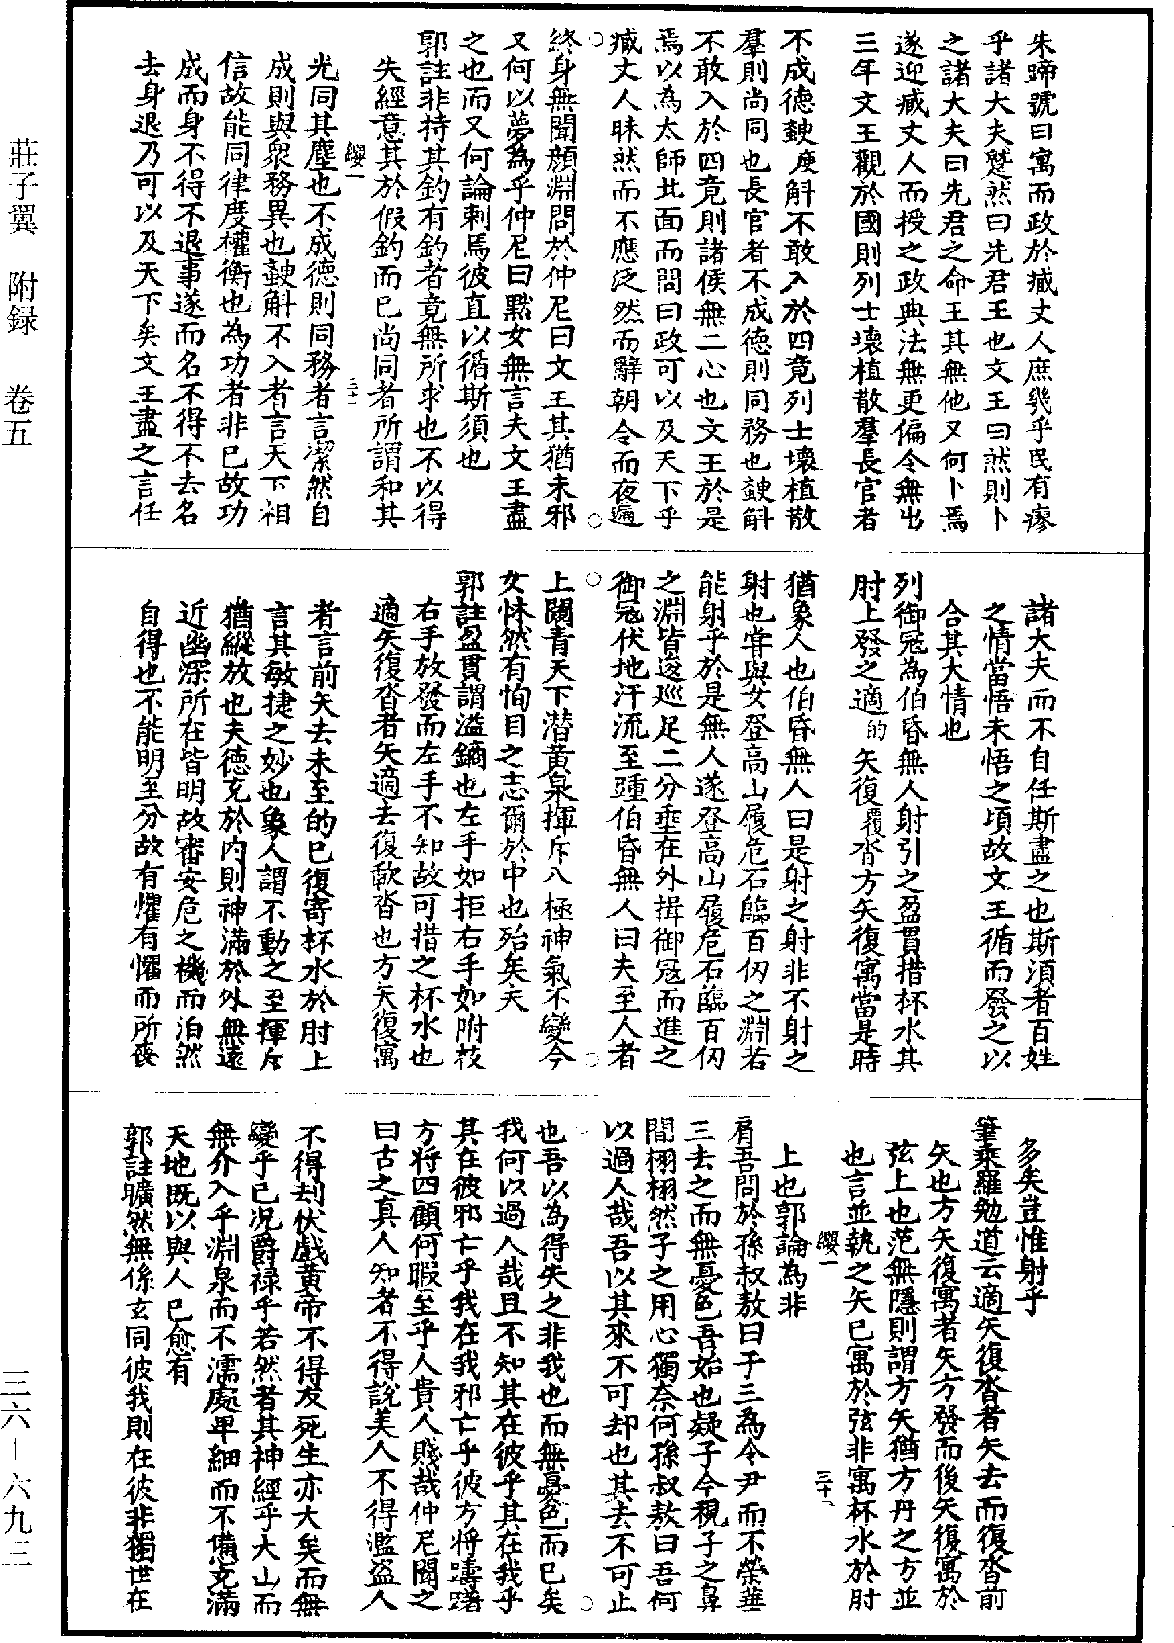 朱蹄號曰寓而政於臧丈人庶幾乎民有瘳
乎諸大夫蹵然曰先君王也文王曰然則卜
之諸大夫曰先君之命王其無他又何卜焉
遂迎臧丈人而授之政典法無更偏令無出
三年文王觀於國則列士壞植散羣長官者
不成德䤥庾斛不敢入於四竟列士壞植散
羣則尚同也長官者不成德則同務也䤥斛
不敢入於四竟則諸侯無二心也文王於是
焉以為太師北面而問曰政可以及天下乎
臧丈人昧然而不應泛然而辭朝令而夜遁
終身無聞顔淵問於仲尼曰文王其猶未邪
又何以夢為乎仲尼曰黙女無言夫文王盡
之也而又何論刺焉彼直以循斯須也
郭註非持其釣有釣者竟無所求也不以得
失經意其於假釣而已尚同者所謂和其
纓一
三十一
光同其塵也不成德則同務者言潔然自
成則與衆務異也䤥斛不入者言天下相
信故能同律度權衡也為功者非已故功
成而身不得不退事遂而名不得不去名
去身退乃可以及天下矣文王盡之言任
諸大夫而不自任斯盡之也斯湏者百姓
之情當悟未悟之頃故文王循而發之以
合其大情也
列御冦為伯昏無人射引之盈貫措杯水其
肘上發之適的矢復覆沓方矢復寓當是時
猶象人也伯昏無人曰是射之射非不射之
射也甞與女登高山履危石臨百仞之淵若
能射乎於是無人遂登高山履危石臨百仞
之淵皆逡巡足二分垂在外揖御冦而進之
御冦伏地汗流至踵伯昏無人曰夫至人者
上闚青天下潛黄泉揮斥八極神氣不變今
女怵然有恂目之志爾於中也殆矣夫
郭註盈貫謂溢鏑也左手如拒右手如附枝
右手放發而左手不知故可措之杯水也
適矢復沓者矢適去復歃沓也方矢復寓
者言前矢去未至的已復寄杯水於肘上
言其敏捷之妙也象人謂不動之至揮斥
猶縱放也夫德充於内則神滿於外無遠
近幽深所在皆明故審安危之機而泊然
自得也不能明至分故有懼有懼而所喪
多矣豈惟射乎
筆乘羅勉道云適矢復沓者矢去而復沓前
矢也方矢復寓者矢方發而後矢復寓於
弦上也范無隱則謂方矢猶方舟之方並
也言並執之矢已寓於弦非寓杯水於肘
纓一
三十二
上也郭論為非
肩吾問於孫叔敖曰子三為令尹而不榮華
三去之而無憂色吾始也疑子今視子之鼻
間栩栩然子之用心獨奈何孫叔敖曰吾何
以過人哉吾以其來不可却也其去不可止
也吾以為得失之非我也而無憂色而已矣
我何以過人哉且不知其在彼乎其在我乎
其在彼邪亡乎我在我邪亡乎彼方將躊躇
方將四顧何暇至乎人貴人賤哉仲尼聞之
曰古之真人知者不得說美人不得濫盗人
不得刦伏戲黄帝不得友死生亦大矣而無
變乎已况爵禄乎若然者其神經乎大山而
無介入乎淵泉而不濡處卑細而不憊充滿
天地既以與人已愈有
郭註曠然無係玄同彼我則在彼非獨世在
莊子翼　附録　卷五
三六—六九三